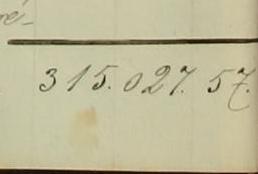 ré-
315.027.57.